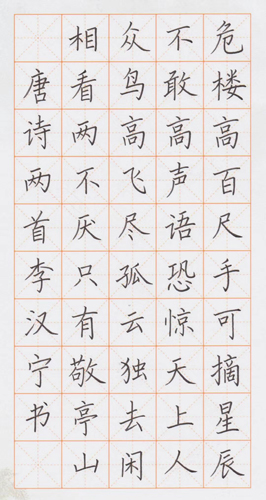 危楼高百尺手可摘星辰
不敢高声语恐惊天上人
众鸟高飞尽孤云独去闲
相看两不厌只有敬亭山
唐诗两首李汉宁书